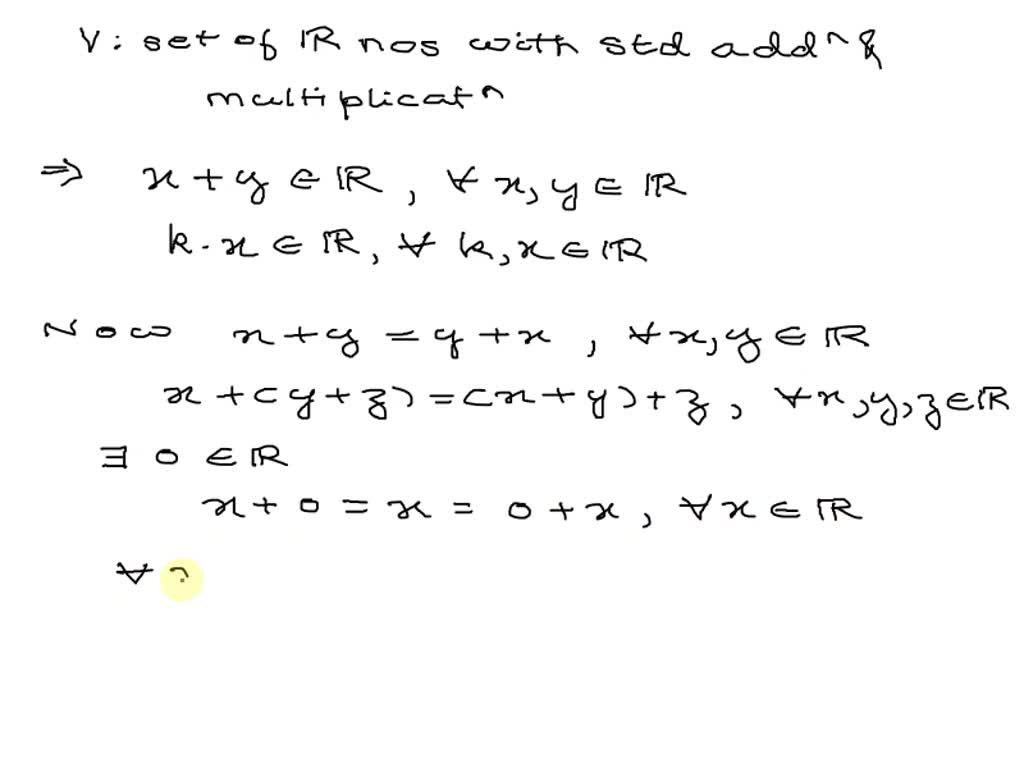 V : set of ℝ nos with std addⁿ &
multiplicatⁿ
⇒ x + y ∈ ℝ, ∀ x, y ∈ ℝ
k . x ∈ ℝ, ∀ k, x ∈ ℝ
Now x + y = y + x, ∀ x, y ∈ ℝ
x + (y + z) = (x + y) + z, ∀ x, y, z ∈ ℝ
∃ 0 ∈ ℝ
x + 0 = x = 0 + x, ∀ x ∈ ℝ
∀